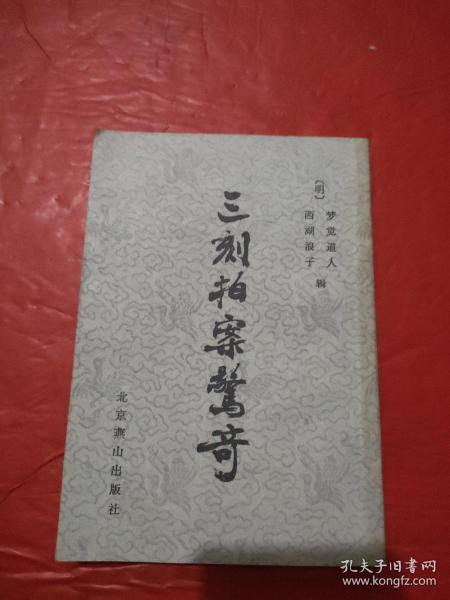 〔明〕
梦觉道人
西湖浪子 辑
三刻拍案驚奇
北京燕山出版社
孔夫子旧书网
www.kongfz.com